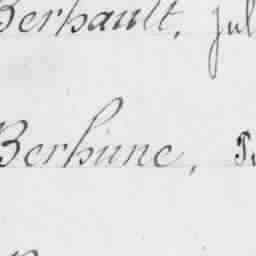 Berhault, Jul
Berhunc,